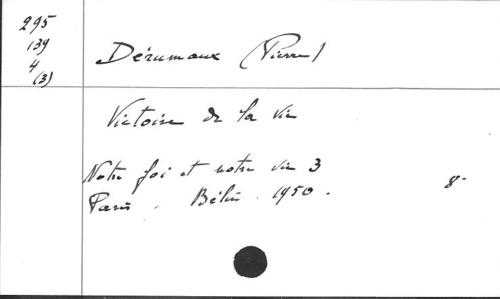 295
139
4
(3)
Dérumaux (Pierre)
Victoire de la vie
Notre foi et notre vie 3
Paris. Belin. 1950.
8°